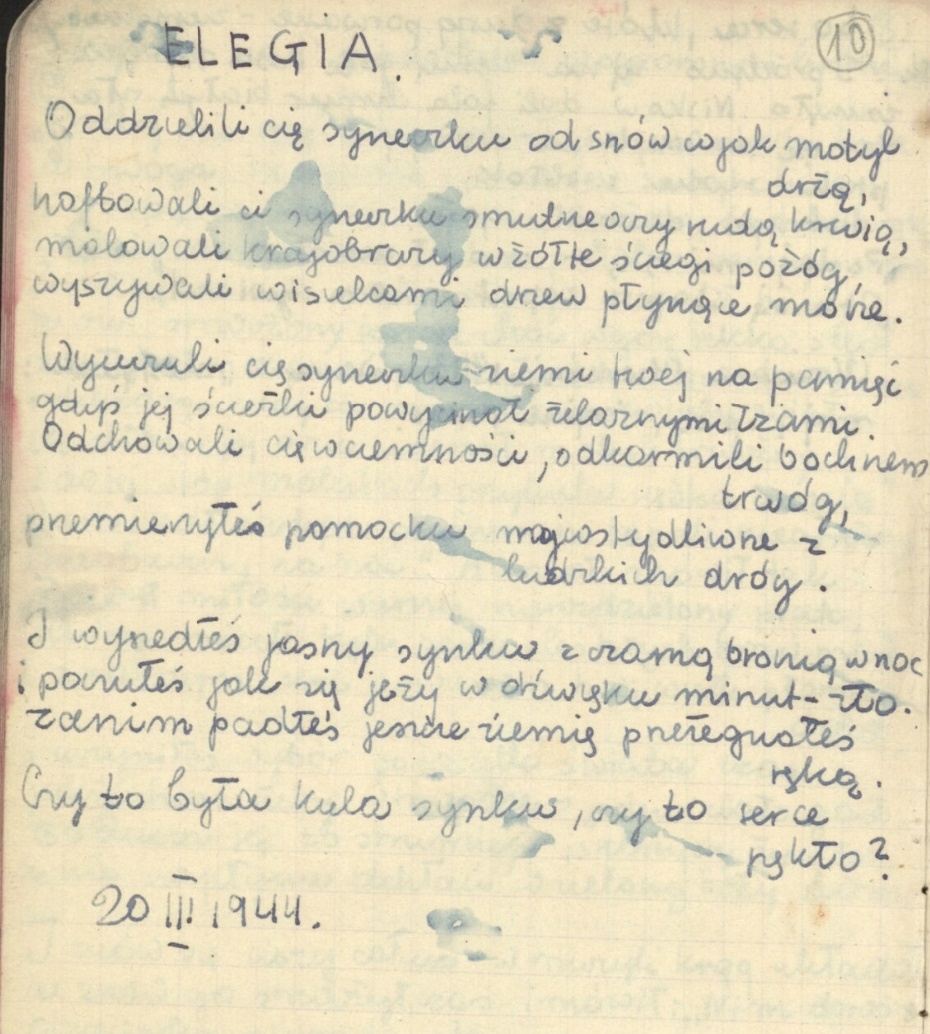 ELEGIA.
10
Oddzielili cię syneczku od snów co jak motyl
drżą,
haftowali ci syneczku smutne oczy rudą krwią,
malowali krajobrazy w żółte ściegi pożóg,
wyszywali wisielcami drzew płynące morze.
Wyuczyli cię syneczku ziemi twej na pamięć
gdyś jej ścieżki powycinał żelaznymi łzami.
Odchowali cię w ciemności, odkarmili bochnem
trwóg,
przemierzyłeś pomocku najwstydliwsze z
ludzkich dróg.
I wyszedłeś jasny synku z czarną bronią w noc
i poczułeś jak się jeży w dźwięku minut-zło.
zanim padłeś jeszcze ziemię przeżegnałeś
ręką.
Czy to była kula synku, czy to serce
pękło?
20 III 1944.